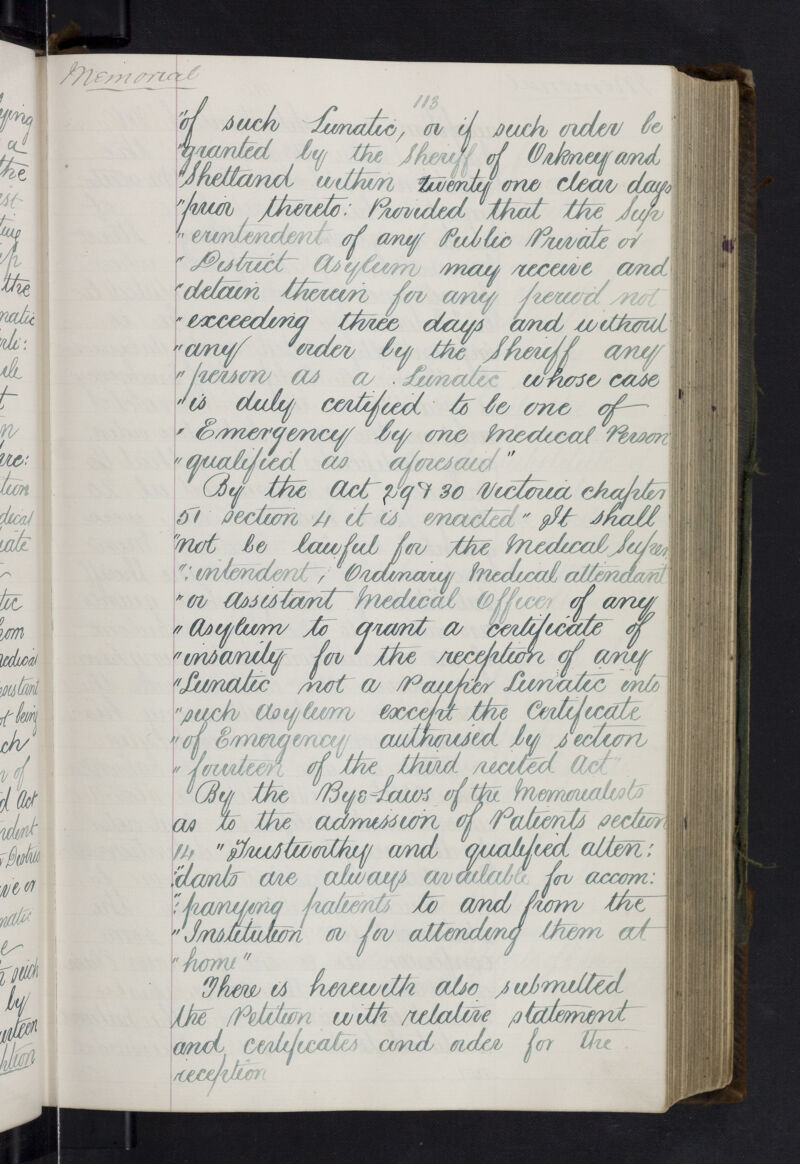 Memorial
113
"of such Lunatic, or if such order be
"granted by the Sheriff of Orkney and
"Shetland within twenty one clear days
"prior thereto: Provided that the Sup
"erintendent of any Public Private or
"District Asylum may receive and
"detain therein for any period not
"exceeding three days and without
"any order by the Sheriff any
"person as a Lunatic whose case
"is duly certified to be one of
"Emergency by one Medical Person
"qualified as aforesaid"
By the Act 29 & 30 Victoria chapter
51 section 4 it is enacted "It shall
"not be lawful for the Medical Super
":intendent, Ordinary Medical attendant
"or Assistant Medical Officer of any
"Asylum to grant a certificate of
"insanity for the reception of any
"Lunatic not a Pauper Lunatic into
"such Asylum except the Certificate
"of Emergency authorised by section
"fourteen of the third recited Act"
By the Bye-Laws of the Memorialists
as to the admission of Patients section
14 "Trustworthy and qualified atten:
":dants are always available for accom:
":panying patients to and from the
"Institution or for attending them at
"home"
There is herewith also submitted
the Petition with relative statement
and certificates and order for the
reception